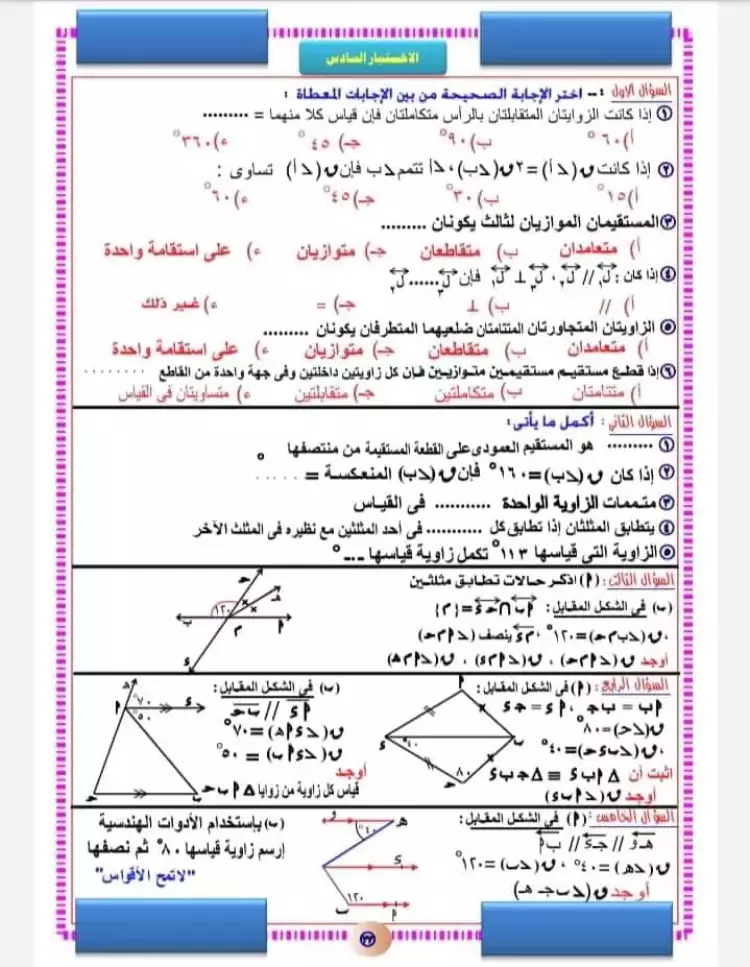 الاختبار السادس
السؤال الاول :-- اختر الإجابة الصحيحة من بين الإجابات المعطاة :
① إذا كانت الزوايتان المتقابلتان بالرأس متكاملتان فإن قياس كلا منهما = .........
أ) ٦٠° ب) ٩٠° جـ) ٤٥° ء) ٣٦٠°
② إذا كانت ن(د أ) = ٢ن(دب) ، دأ تتمم دب فإن ن(د أ) تساوى :
أ) ١٥° ب) ٣٠° جـ) ٤٥° ء) ٦٠°
③ المستقيمان الموازيان لثالث يكونان .........
أ) متعامدان ب) متقاطعان جـ) متوازيان ء) على استقامة واحدة
④ إذا كان : ل١ // ل٢ ، ل٣ ⊥ ل١ فإن ل٣......ل٢
أ) // ب) ⊥ جـ) = ء) غير ذلك
⑤ الزاويتان المتجاورتان المتتامتان ضلعيهما المتطرفان يكونان .........
أ) متعامدان ب) متقاطعان جـ) متوازيان ء) على استقامة واحدة
⑥ إذا قطع مستقيم مستقيمين متوازيين فإن كل زاويتين داخلتين وفى جهة واحدة من القاطع .........
أ) متتامتان ب) متكاملتين جـ) متقابلتين ء) متساويتان في القياس
السؤال الثانى : أكمل ما يأتى :
① ......... هو المستقيم العمودى على القطعة المستقيمة من منتصفها
② إذا كان ن(دب) = ١٦٠° فإن ن(دب) المنعكسة = ..... °
③ متممات الزاوية الواحدة ........... فى القياس
④ يتطابق المثلثان إذا تطابق كل ........... فى أحد المثلثين مع نظيره فى المثلث الآخر
⑤ الزاوية التى قياسها ١١٣° تكمل زاوية قياسها ..... °
السؤال الثالث : (أ) اذكر حالات تطابق مثلثين
(ب) في الشكل المقابل : أب ∩ حء = {م}
، ن(دب م ح) = ١٢٠° ، م ء ينصف (د أ م ح)
أوجد ن(د أ م ح) ، ن(د أ م ء) ، ن(د أ م هـ)
ح هـ ١٢٠ ب م أ ء
السؤال الرابع : (أ) في الشكل المقابل :
أب = ب جـ ، أء = جـ ء
ن(دح) = ٨٠°
، ن(دب ء ح) = ٤٠°
اثبت أن Δ أ ب ء ≡ Δ جـ ب ء
أوجد ن(د أ ب ء)
أ ء ٤٠° ب ٨٠ ح
(ب) في الشكل المقابل :
أ ء // ب ح
ن(د ء أ هـ) = ٧٠°
ن(د ء أ ب) = ٥٠°
أوجد
قياس كل زاوية من زوايا Δ أ ب ح
هـ ٧٠° ء أ ٥٠° ح ب
السؤال الخامس : (أ) في الشكل المقابل :
هـ و // جـ ء // ب أ
ن(دهـ) = ٤٠° ، ن(دب) = ١٢٠°
أوجد ن(د ب جـ هـ)
و هـ ٤٠° ء ١٢٠ ب أ
(ب) بإستخدام الأدوات الهندسية
إرسم زاوية قياسها ٨٠° ثم نصفها
"لاتمح الأقواس"
٢٢